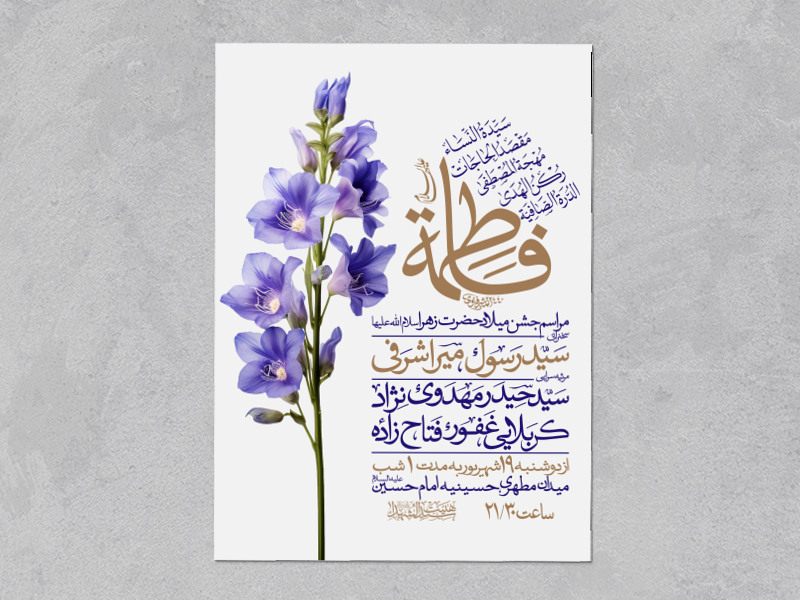 سَيِّدَةُ النِّسَاء
مَقْصَدُ الحَاجَات
مُهْجَةُ المُصْطَفَى
رُكْنُ الهُدَى
الدُّرَّةُ الصَّافِيَة
فاطمة
مراسم جشن میلاد حضرت زهرا سلام الله علیها
سخنرانی
سید رسول میراشرفی
مرثیه سرایی
سید حیدر مهدوی نژاد
کربلایی غفور فتاح زاده
از دوشنبه ۱۹ شهریور به مدت ۱ شب
میدان مطهری، حسینیه امام حسین علیه السلام
ساعت ۲۱/۳۰